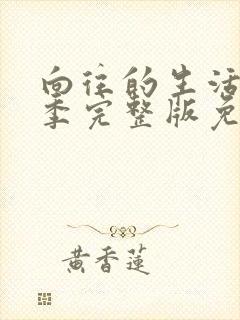 向往的生活
季完整版免
黄香莲